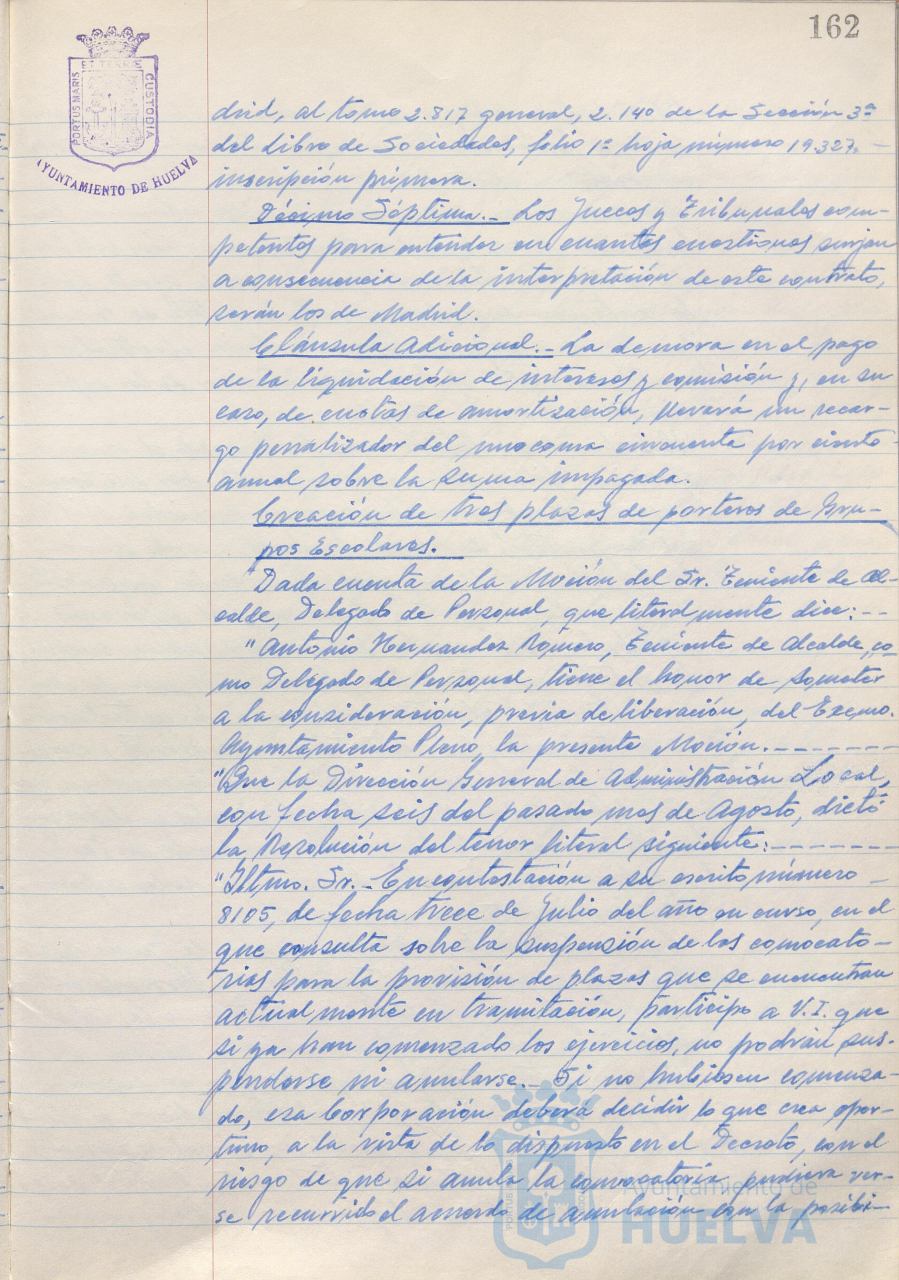 162
PORTUS MARIS ET TERRE CUSTODIA
AYUNTAMIENTO DE HUELVA
drid, al tomo 2.817 general, 2.140 de la Sección 3ª
del Libro de Sociedades, folio 1º hoja número 19.327, –
inscripción primera.
Décimo Séptima.- Los Jueces y Tribunales com-
petentes para entender en cuantas cuestiones surjan
a consecuencia de la interpretación de este contrato,
serán los de Madrid.
Cláusula Adicional.- La demora en el pago
de la liquidación de intereses y comisión y, en su
caso, de cuotas de amortización, llevará un recar-
go penalizador del uno coma cincuenta por ciento
anual sobre la suma impagada.
Creación de tres plazas de porteros de Gru-
pos Escolares.
Dada cuenta de la Moción del Sr. Teniente de Al-
calde, Delegado de Personal, que literalmente dice:--
"Antonio Hernandez Romero, Teniente de Alcalde, co-
mo Delegado de Personal, tiene el honor de someter
a la consideración, previa deliberación, del Excmo.
Ayuntamiento Pleno, la presente Moción.--------
"Que la Dirección General de Administración Local,
con fecha seis del pasado mes de Agosto, dictó
la Resolución del tenor literal siguiente:-------
"Iltmo. Sr.- En contestación a su escrito número –
8105, de fecha trece de Julio del año en curso, en el
que consulta sobre la suspensión de las convocato-
rias para la provisión de plazas que se encuentran
actualmente en tramitación, participo a V.I. que
si ya han comenzado los ejercicios, no podrán sus-
penderse ni anularse.- Si no hubiesen comenza-
do, esa Corporación deberá decidir lo que crea opor-
tuno, a la vista de lo dispuesto en el Decreto, con el
riesgo de que si anula la convocatoria, pudiera ver-
se recurrido el acuerdo de anulación con la posibi-
Ayuntamiento de
HUELVA